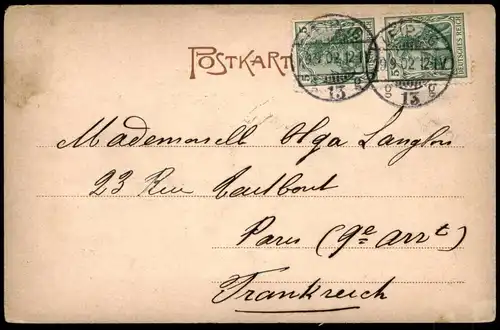 POSTKARTE
LEIPZIG
9.9.02 12-1V
13
g g
5
DEUTSCHES REICH
5
LEIPZIG
9.9.02 12-1V
13
g g
Mademoiselle Olga Langlois
23 Rue Taitbout
Paris (9e arrt)
Frankreich